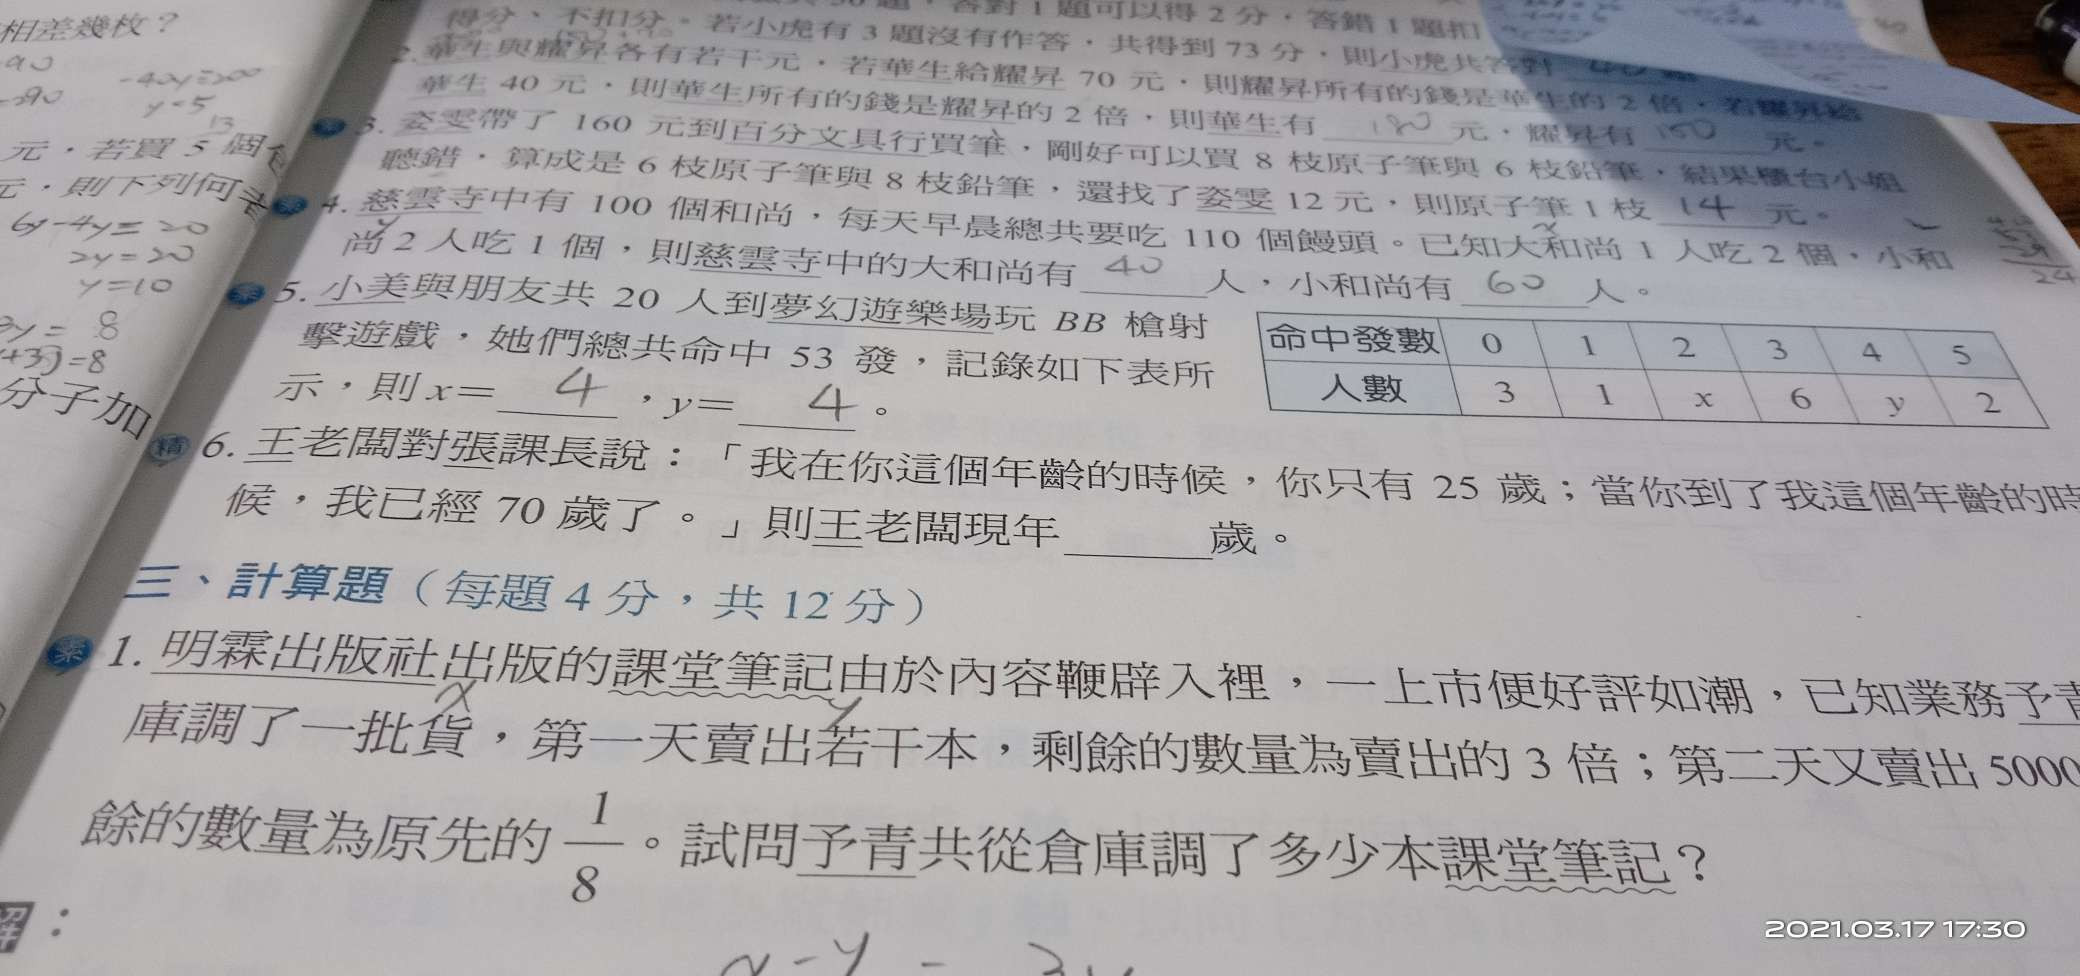 相差幾枚？
-40y=200
y=5
元，若買 5 個
元，則下列何者
6y-4y=20
2y=20
y=10
3y=8
分子加
答對 1 題可以得 2 分，答錯 1 題扣
得分、不扣分。若小虎有 3 題沒有作答，共得到 73 分，則小虎共答對
2. 華生與耀昇各有若干元，若華生給耀昇 70 元，則耀昇所有的錢是華生的 2 倍，若耀昇給
華生 40 元，則華生所有的錢是耀昇的 2 倍，則華生有 180 元，耀昇有 150 元。
3. 姿雯帶了 160 元到百分文具行買筆，剛好可以買 8 枝原子筆與 6 枝鉛筆，結果櫃台小姐
聽錯，算成是 6 枝原子筆與 8 枝鉛筆，還找了姿雯 12 元，則原子筆 1 枝 14 元。
4. 慈雲寺中有 100 個和尚，每天早晨總共要吃 110 個饅頭。已知大和尚 1 人吃 2 個，小和
尚 2 人吃 1 個，則慈雲寺中的大和尚有 40 人，小和尚有 60 人。
5. 小美與朋友共 20 人到夢幻遊樂場玩 BB 槍射
擊遊戲，她們總共命中 53 發，記錄如下表所
示，則 x= 4 ，y= 4 。
命中發數 0 1 2 3 4 5
人數 3 1 x 6 y 2
精 6. 王老闆對張課長說：「我在你這個年齡的時候，你只有 25 歲；當你到了我這個年齡的時
候，我已經 70 歲了。」則王老闆現年 歲。
三、計算題（每題 4 分，共 12 分）
1. 明霖出版社出版的課堂筆記由於內容鞭辟入裡，一上市便好評如潮，已知業務予青
x y
庫調了一批貨，第一天賣出若干本，剩餘的數量為賣出的 3 倍；第二天又賣出 5000
餘的數量為原先的 1/8 。試問予青共從倉庫調了多少本課堂筆記？
解：
x-y = 3y
2021.03.17 17:30